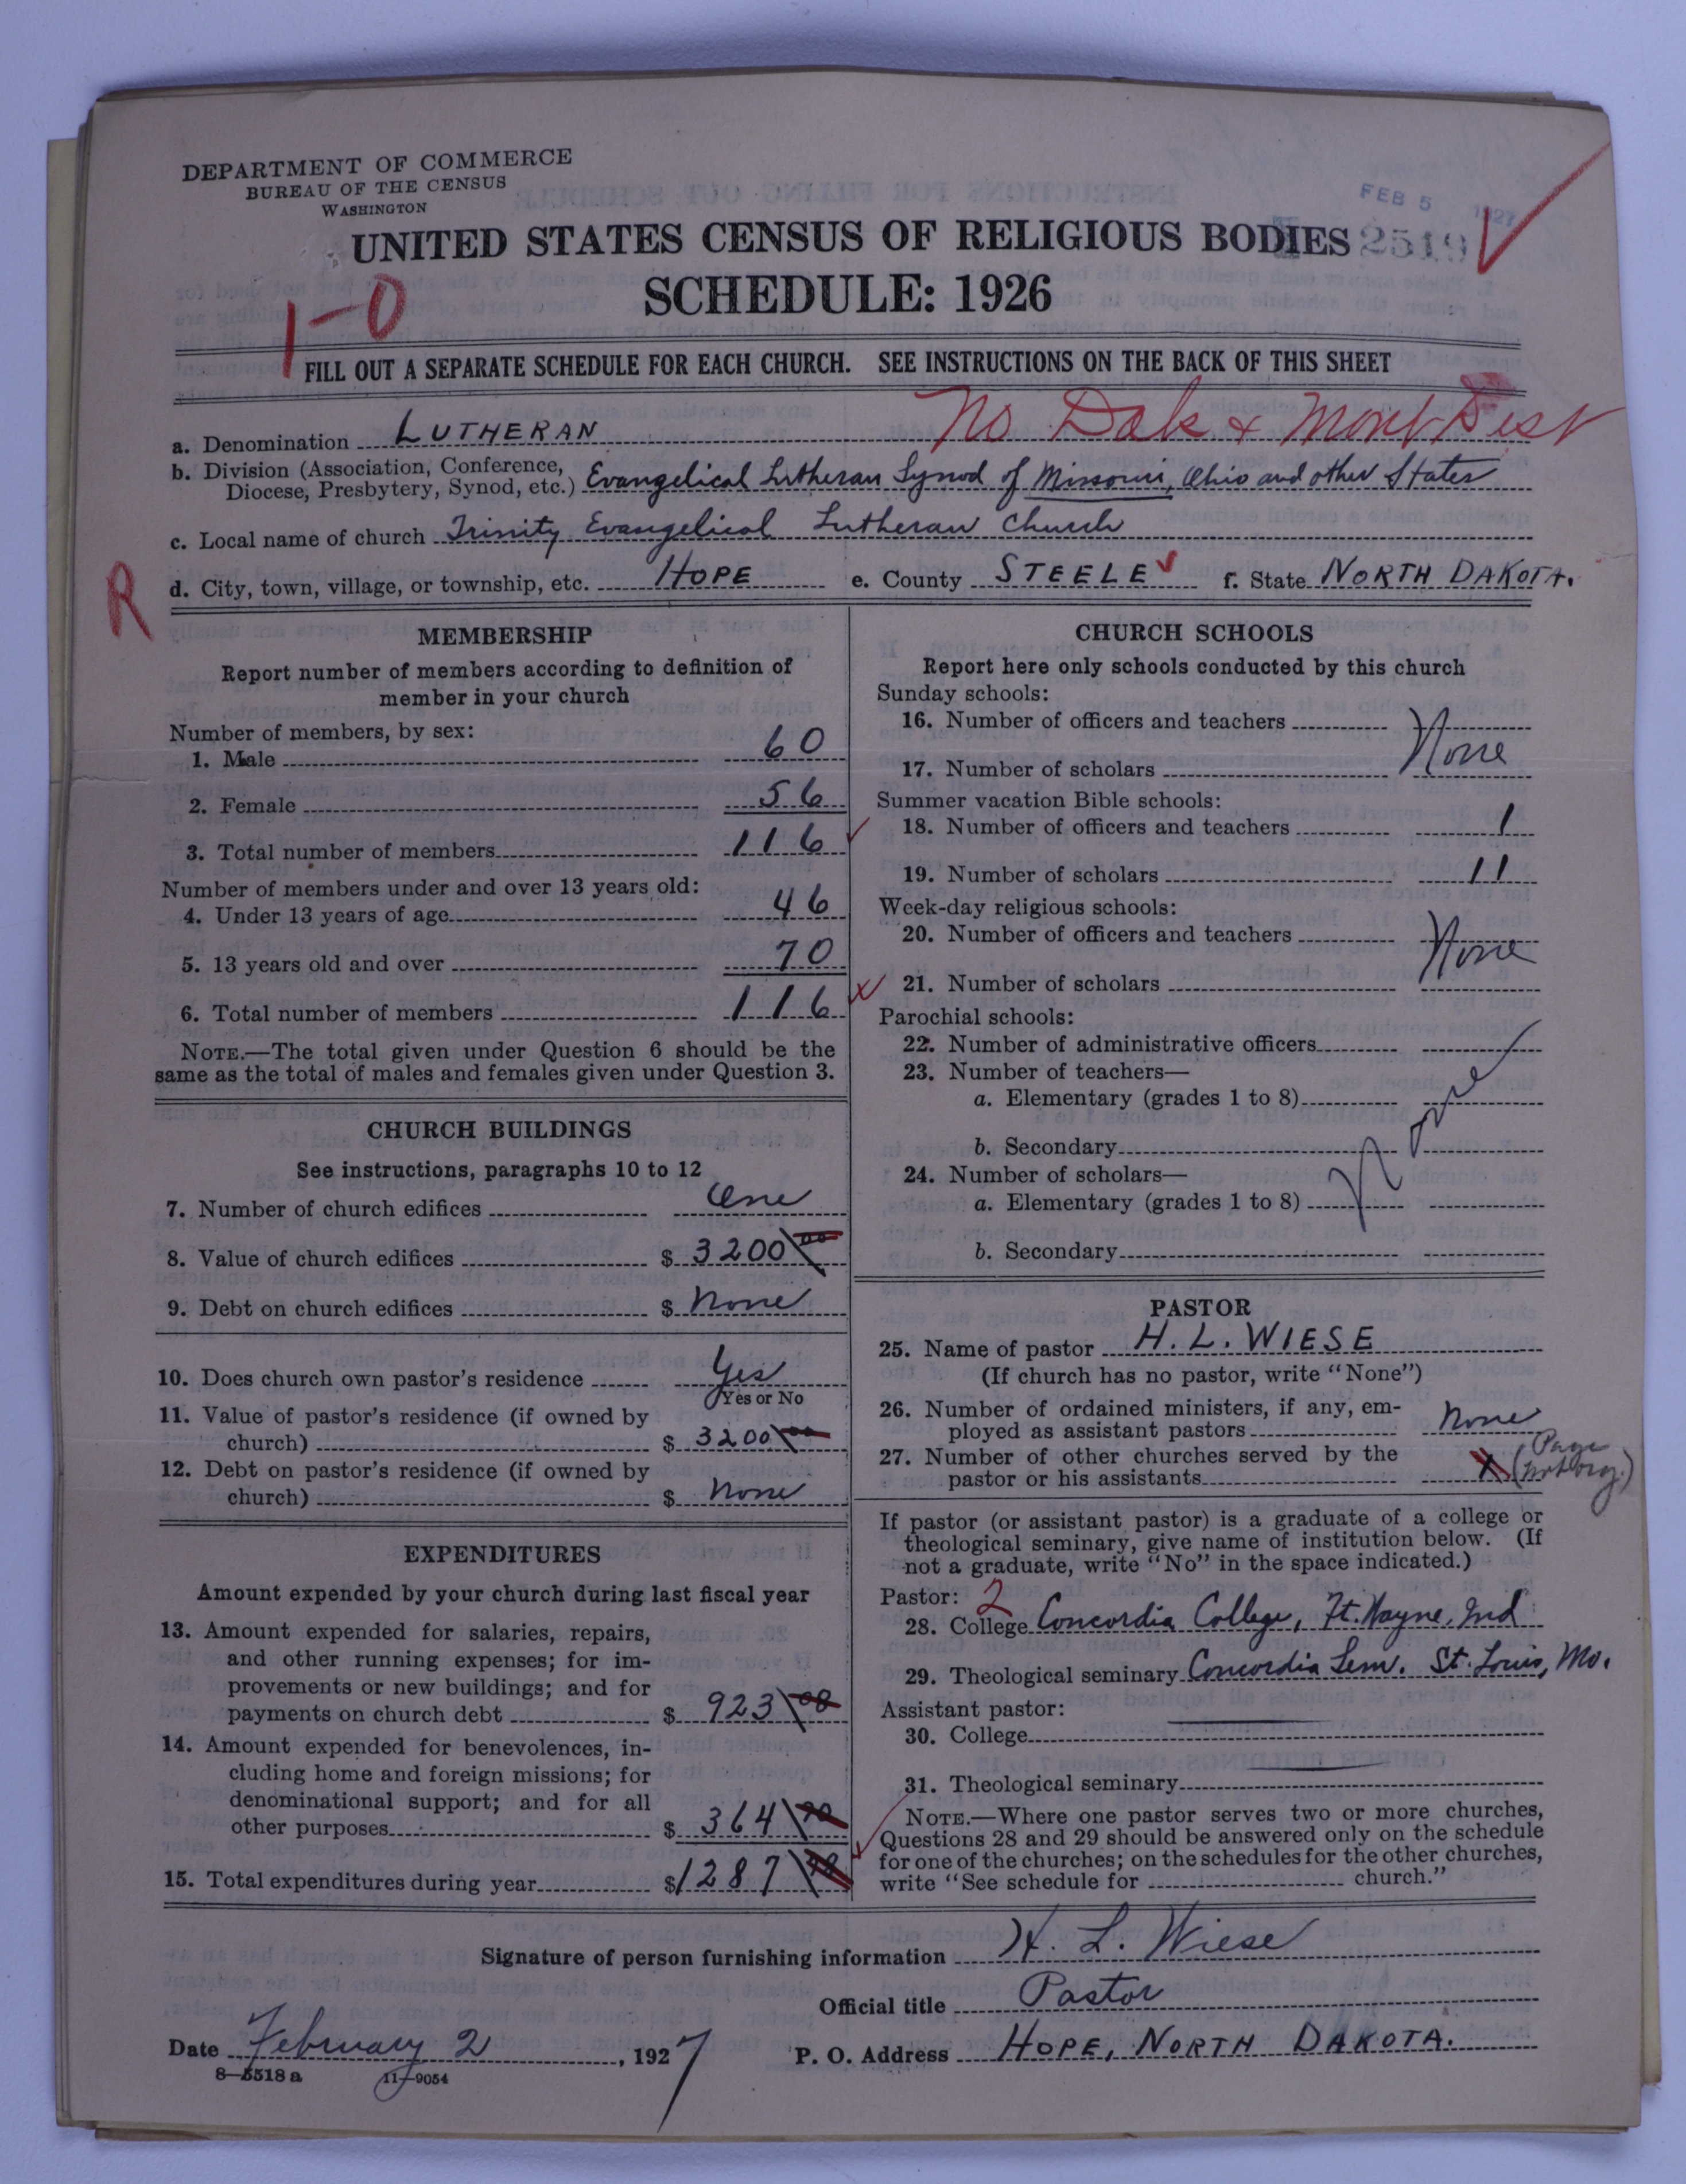 DEPARTMENT OF COMMERCE
BUREAU OF THE CENSUS
WASHINGTON
FEB 5 1927
UNITED STATES CENSUS OF RELIGIOUS BODIES 2519
SCHEDULE: 1926
1-0
FILL OUT A SEPARATE SCHEDULE FOR EACH CHURCH. SEE INSTRUCTIONS ON THE BACK OF THIS SHEET
No Dak & Mont Dist
a. Denomination LUTHERAN
b. Division (Association, Conference,
Diocese, Presbytery, Synod, etc.) Evangelical Lutheran Synod of Missouri, Ohio and other States
c. Local name of church Trinity Evangelical Lutheran Church
d. City, town, village, or township, etc. HOPE e. County STEELE f. State NORTH DAKOTA.
R
MEMBERSHIP
Report number of members according to definition of
member in your church
Number of members, by sex:
1. Male 60
2. Female 56
3. Total number of members 116
Number of members under and over 13 years old:
4. Under 13 years of age 46
5. 13 years old and over 70
6. Total number of members 116
NOTE.—The total given under Question 6 should be the
same as the total of males and females given under Question 3.
CHURCH BUILDINGS
See instructions, paragraphs 10 to 12
7. Number of church edifices One
8. Value of church edifices $ 3200 00
9. Debt on church edifices $ None
10. Does church own pastor's residence Yes
Yes or No
11. Value of pastor's residence (if owned by
church) $ 3200 00
12. Debt on pastor's residence (if owned by
church) $ None
EXPENDITURES
Amount expended by your church during last fiscal year
13. Amount expended for salaries, repairs,
and other running expenses; for im-
provements or new buildings; and for
payments on church debt $ 923 08
14. Amount expended for benevolences, in-
cluding home and foreign missions; for
denominational support; and for all
other purposes $ 364
15. Total expenditures during year $ 1287
CHURCH SCHOOLS
Report here only schools conducted by this church
Sunday schools:
16. Number of officers and teachers
None
17. Number of scholars
Summer vacation Bible schools:
18. Number of officers and teachers 1
19. Number of scholars 11
Week-day religious schools:
20. Number of officers and teachers
None
21. Number of scholars
Parochial schools:
22. Number of administrative officers
23. Number of teachers—
a. Elementary (grades 1 to 8)
None
b. Secondary
24. Number of scholars—
a. Elementary (grades 1 to 8)
b. Secondary
PASTOR
25. Name of pastor H. L. WIESE
(If church has no pastor, write "None")
26. Number of ordained ministers, if any, em-
ployed as assistant pastors None
27. Number of other churches served by the
pastor or his assistants 1 (Page
not org.)
If pastor (or assistant pastor) is a graduate of a college or
theological seminary, give name of institution below. (If
not a graduate, write "No" in the space indicated.)
Pastor: 2
28. College Concordia College, Ft. Wayne, Ind
29. Theological seminary Concordia Sem. St. Louis, Mo.
Assistant pastor:
30. College
31. Theological seminary
NOTE.—Where one pastor serves two or more churches,
Questions 28 and 29 should be answered only on the schedule
for one of the churches; on the schedules for the other churches,
write "See schedule for church."
Signature of person furnishing information H. L. Wiese
Official title Pastor
Date February 2, 1927 P. O. Address HOPE, NORTH DAKOTA.
8—5518 a 11—9054